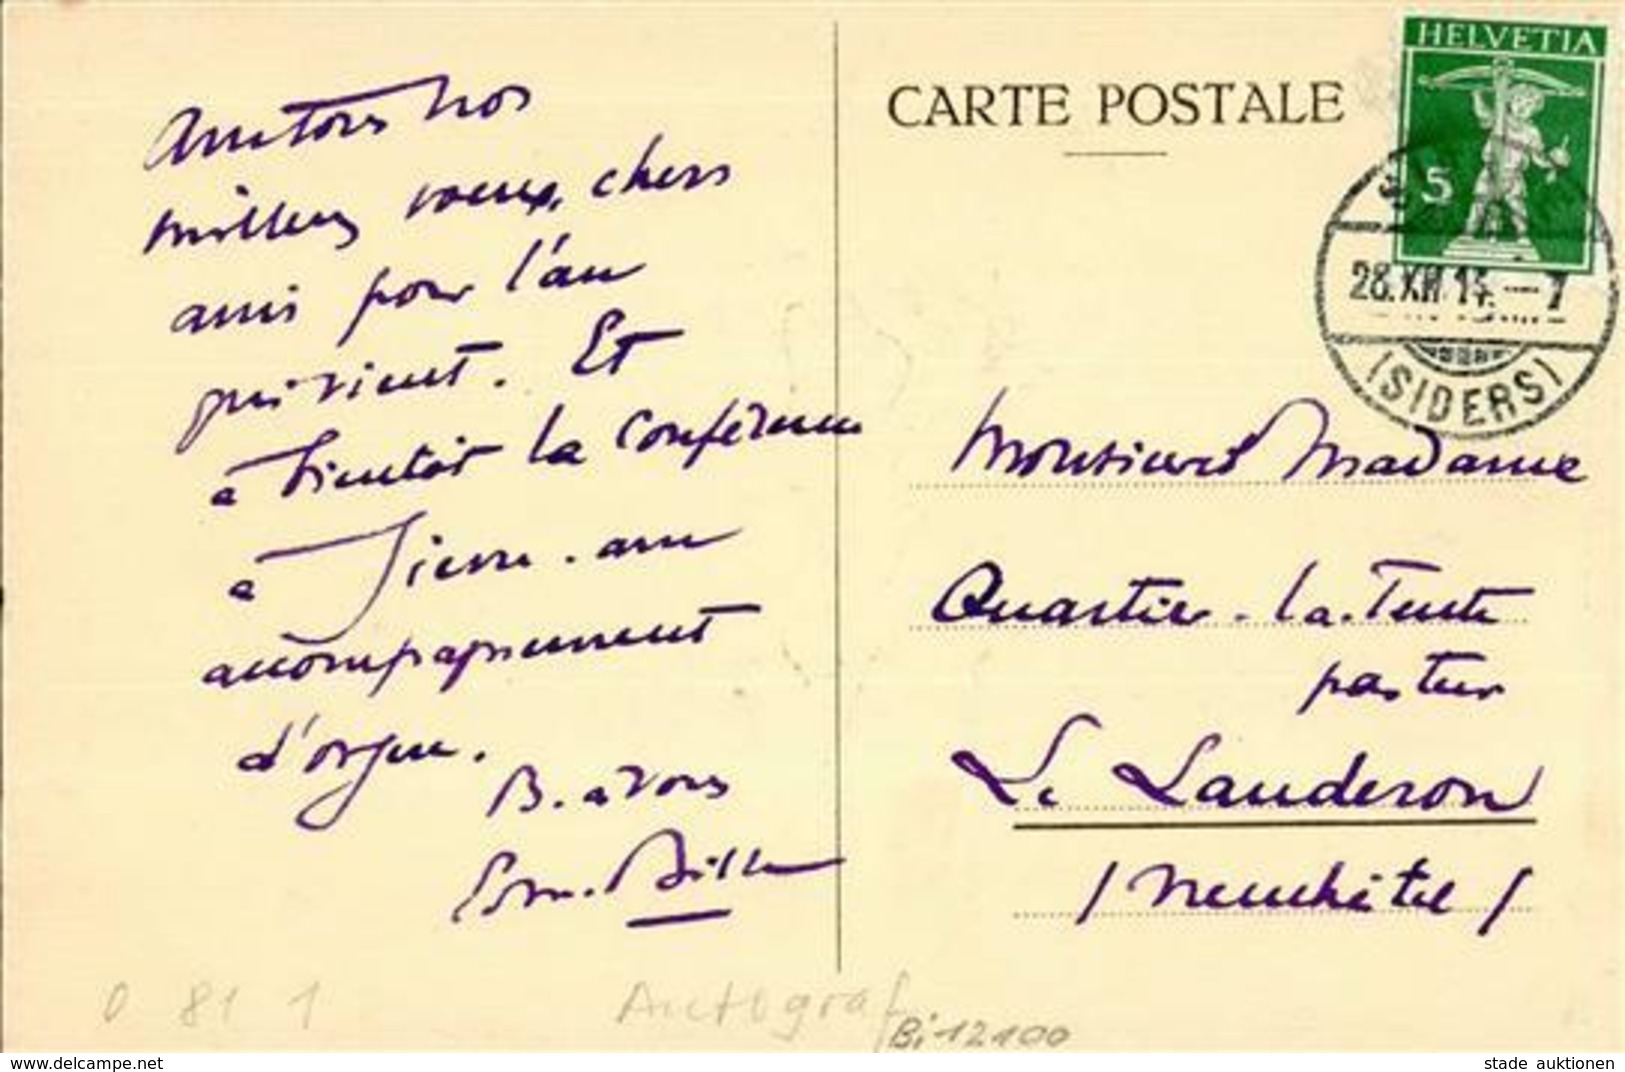 Avec tous nos
meilleurs voeux, chers
amis pour l'an
qui vient. Et
à bientôt la conférence
à Sierre. avec
accompagnement
d'orgue.
B. à vous
Edm. Bille
CARTE POSTALE
HELVETIA
5
28.XII.14.-7
(SIDERS)
Monsieur et Madame
Quartier-la-Tente
pasteur
Le Landeron
(Neuchâtel)
0 81 1
Autograf
Bi 12100
www.delcampe.net
stade auktionen